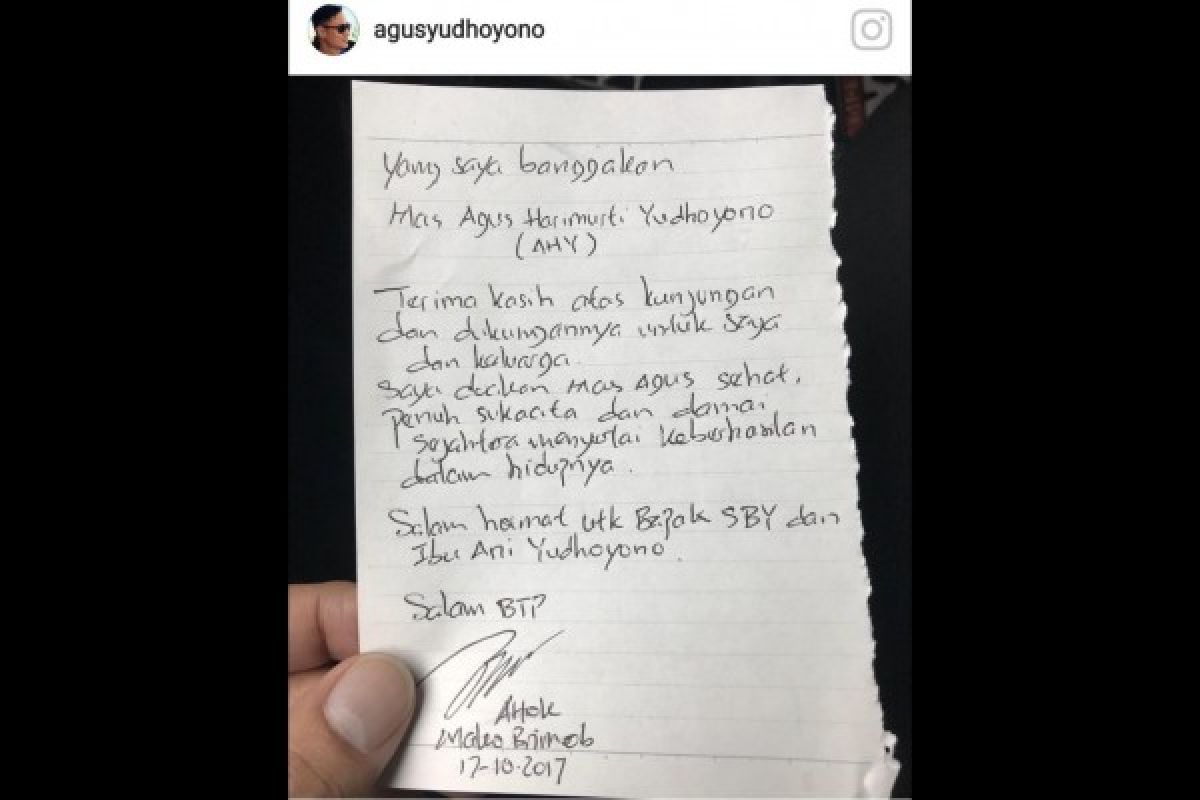 agusyudhoyono
Yang saya banggakan
Mas Agus Harimurti Yudhoyono
(AHY)
Terima kasih atas kunjungan
dan dukungannya untuk saya
dan keluarga.
Saya doakan Mas Agus sehat,
penuh sukacita dan damai
sejahtera menyertai keberhasilan
dalam hidupnya.
Salam hormat utk Bapak SBY dan
Ibu Ani Yudhoyono.
Salam BTP
Ahok
Mako Brimob
17-10-2017